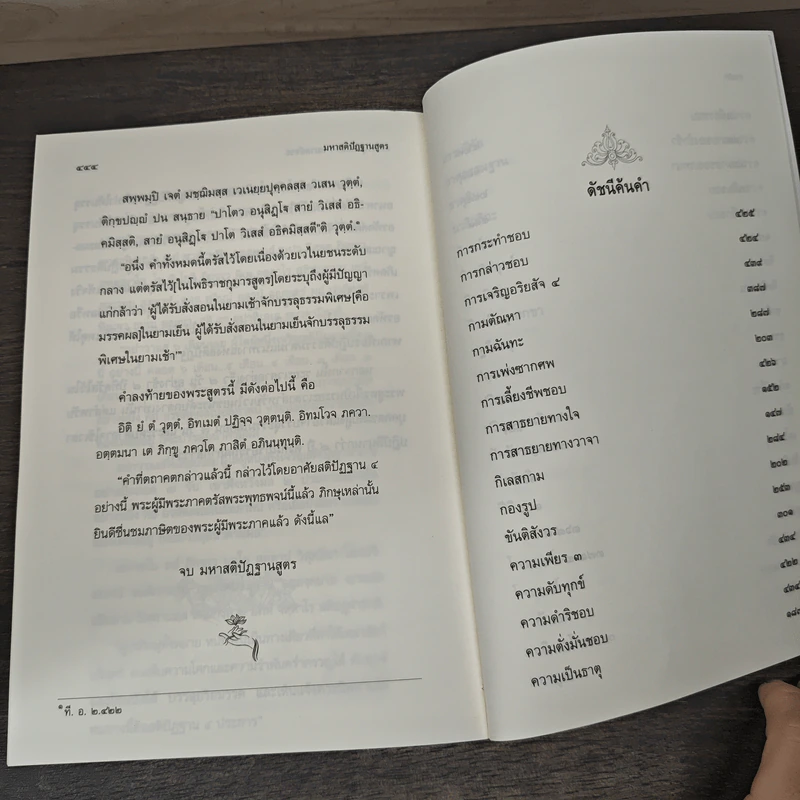 ๔๔๔
มหาสติปัฏฐานสูตร
สพฺพมฺปิ เจตํ มชฺฌิมสฺส เวเนยฺยปุคฺคลสฺส วเสน วุตฺตํ,
ติกฺขปญฺญํ ปน สนฺธาย "ปาโตว อนุสิฏฺโฐ สายํ วิเสสํ อธิ-
คมิสฺสติ, สายํ อนุสิฏฺโฐ ปาโต วิเสสํ อธิคมิสฺสตี"ติ วุตฺตํ.๑
"อนึ่ง คำทั้งหมดนี้ตรัสไว้โดยเนื่องด้วยเวไนยชนระดับ
กลาง แต่ตรัสไว้[ในโพธิราชกุมารสูตร]โดยระบุถึงผู้มีปัญญา
แก่กล้าว่า 'ผู้ได้รับสั่งสอนในยามเช้าจักบรรลุธรรมพิเศษ[คือ
มรรคผล]ในยามเย็น ผู้ได้รับสั่งสอนในยามเย็นจักบรรลุธรรม
พิเศษในยามเช้า'"
คำลงท้ายของพระสูตรนี้ มีดังต่อไปนี้ คือ
อิติ ยํ ตํ วุตฺตํ, อิทเมตํ ปฏิจฺจ วุตฺตนฺติ. อิทมโวจ ภควา.
อตฺตมนา เต ภิกฺขู ภควโต ภาสิตํ อภินนฺทุนฺติ.
"คำที่ตถาคตกล่าวแล้วนี้ กล่าวไว้โดยอาศัยสติปัฏฐาน ๔
อย่างนี้ พระผู้มีพระภาคตรัสพระพุทธพจน์นี้แล้ว ภิกษุเหล่านั้น
ยินดีชื่นชมภาษิตของพระผู้มีพระภาคแล้ว ดังนี้แล"
จบ มหาสติปัฏฐานสูตร
๑ ที. อ. ๒.๔๒๒
ดัชนีค้นคำ
การกระทำชอบ ๔๒๕
การกล่าวชอบ ๔๒๔
การเจริญอริยสัจ ๔ ๔๓๘
กามตัณหา ๓๘๗
กามฉันทะ ๒๘๗
การเพ่งซากศพ ๒๐๓
การเลี้ยงชีพชอบ ๔๒๖
การสาธยายทางใจ ๑๕๒
การสาธยายทางวาจา ๑๔๗
กิเลสกาม ๒๘๔
กองรูป ๒๐๒
ขันติสังวร ๒๕๓
ความเพียร ๓ ๓๐๑
ความดับทุกข์ ๔๓๔
ความดำริชอบ ๔๒๒
ความตั้งมั่นชอบ ๔๓๔
ความเป็นธาตุ